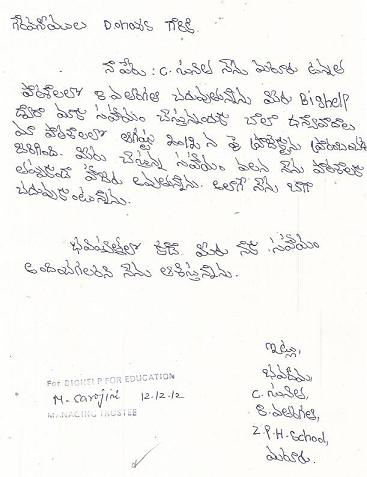 గౌరవనీయులు Donors గారికి
నా పేరు : C. సునీత నేను మరూరు ఉన్నత
పాఠశాలలో 8 వ తరగతి చదువుతున్నాను మీరు Bighelp
ద్వారా మాకు సహాయం చేస్తున్నందుకు చాలా ధన్యవాదాలు
మా పాఠశాలలో ఆగష్టు 2012 న ఈ ప్రాజెక్టును ప్రారంభించడం
జరిగింది. మీరు చేస్తున్న సహాయం వలన నేను పాఠశాలకు
తప్పకుండా హాజరు అవుతున్నాను. అలాగే నేను బాగా
చదువుకుంటున్నాను.
భవిష్యత్తులో కూడా మీరు నాకు సహాయం
అందించగలరని నేను ఆశిస్తున్నాను.
ఇట్లు,
భవదీయ,
C. సునీత,
8 వ తరగతి,
Z.P.H. School,
మరూరు.
For BIGHELP FOR EDUCATION
M. Sarojini 12.12.12
MANAGING TRUSTEE